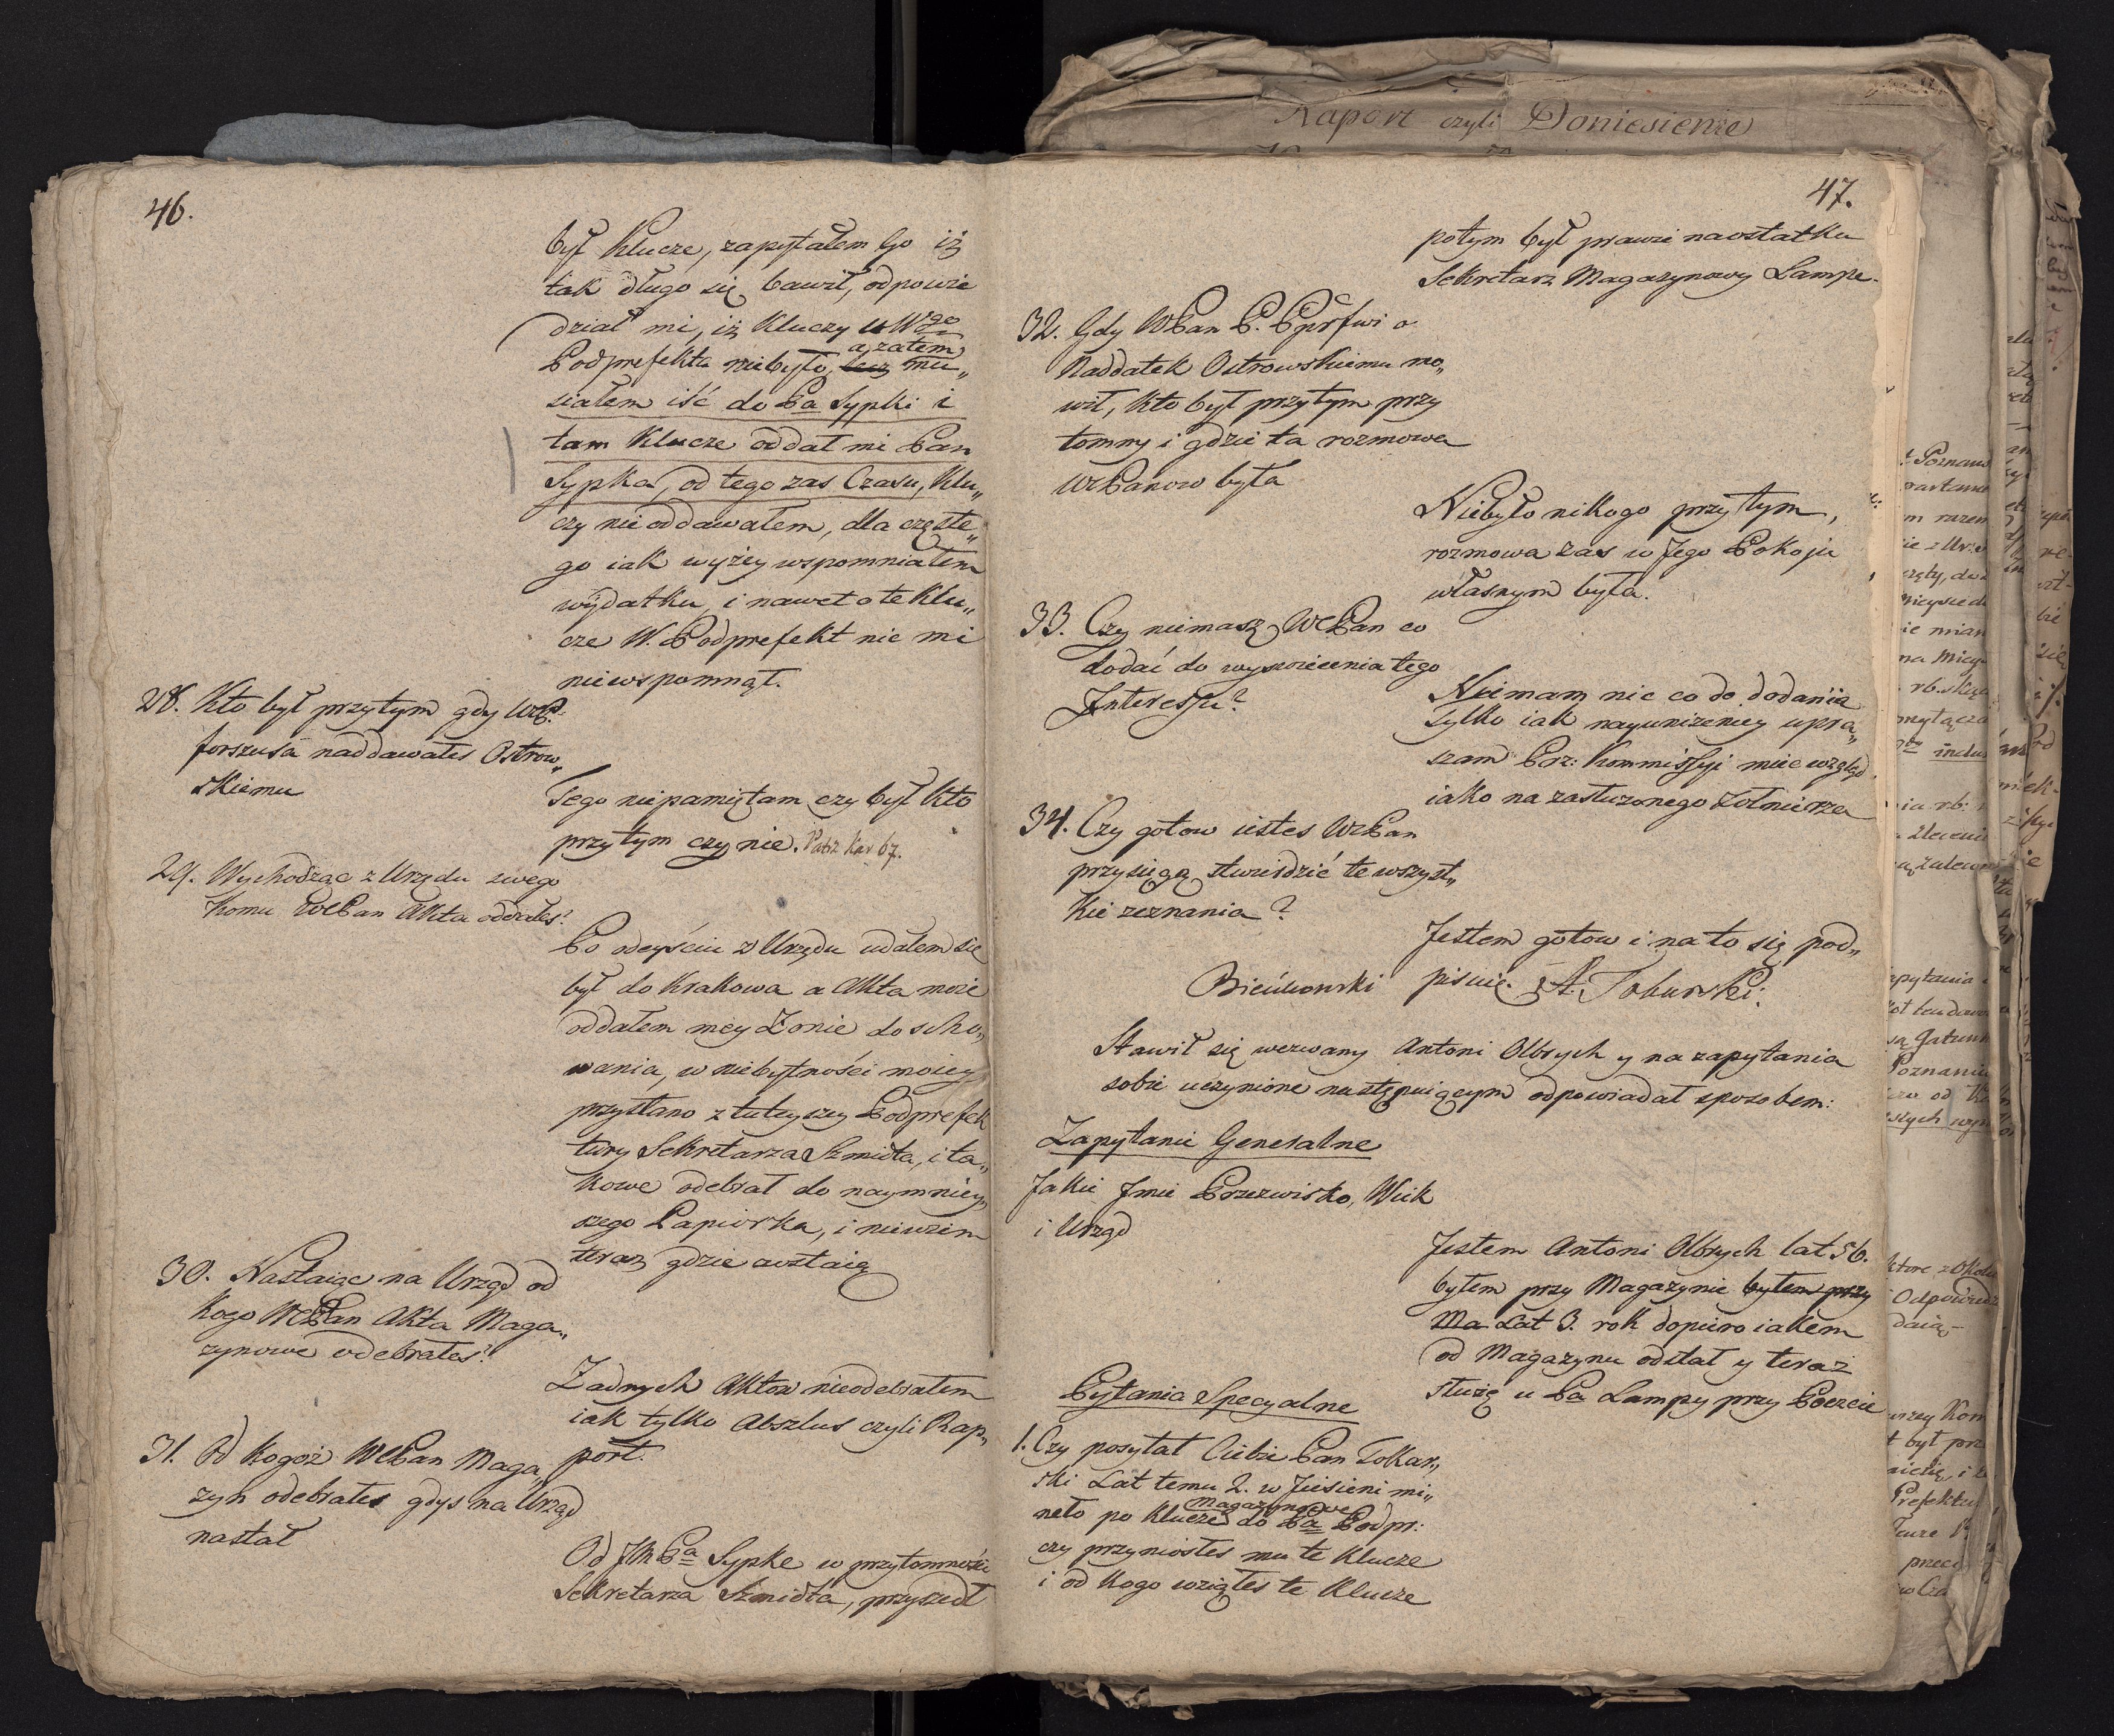 46.
był Klucze, zapytałem Go iż
tak długo się bawił, odpowie
dział mi, iż Kluczy u Wgo
a zatem
Podprefekta niebyło, lecz mu„
siałem iść do Pa Sypki i
tam Klucze oddał mi Pan
Sypka, od tego zas Czasu, Klu„
czy nie oddawałem, dla częste„
go iak wyżey wspomniałem
wydatku, i nawet o te Klu„
cze W. Podprefekt nic mi
niewspomnął.
28. Kto był przytym gdy WP.
forszusa naddawałes Ostrow„
skiemu
Tego niepamiętam czy był kto
przytym czy nie. Patrz Kar 67.
29. Wychodząc z Urzędu swego
komu WcPan Akta oddałes?
Po odeyściu z Urzędu udałem się
był do Krakowa a Akta moie
oddałem mey Zonie do scho„
wania, w niebytności moiey
przysłano z tuteyszey Podprefek
tury Sekretarza Szmidta, i ta„
kowe odebrał do naymniey„
szego Papiorka, i niewiem
teraz gdzie zostaią
30. Nastaiąc na Urząd od
kogo WcPan Akta Maga„
zynowe odebrałes?
Zadnych Aktow nieodebrałem
iak tylko Abszlus czyli Rap„
port.
31. Od kogoż WcPan Maga„
zyn odebrałes gdys na Urząd
nastał
Od JM Pa Sypke w przytomności
Sekretarza Szmidta, przyszedł
Raport czyli Doniesienie
47.
potym był prawie naostatku
Sekretarz Magazynowy Lampe.
32. Gdy WPan P. o
Naddatek Ostrowskiemu mo„
wił, kto był przytym przy
tomny i gdzie ta rozmowa
WcPanow była
Niebyło nikogo przytym,
rozmowa zas w Jego Pokoju
własnym była.
33. Czy niemasz WcPan co
dodać do wyswiecenia tego
Interessu?
Niemam nic co do dodania
tylko iak nayunizeniey upra„
szam Prz: Kommissyi miec wzgląd
iako na zasłuzonego Zołnierza
34. Czy gotow iestes WcPan
przysięgą stwierdzić te wszyst„
kie zeznania?
Jestem gotow i na to się pod„
pisuię. A. Tokarski.
Bieńkowski
Stawił się wezwany Antoni Olbrych y na zapytania
sobie uczynione następuiącym odpowiadał sposobem:
Zapytanie Generalne
Jakie Jmie Przezwisko, Wiek
i Urząd
Jestem Antoni Olbrych lat 56.
byłem przy Magazynie byłem przy
Ma Lat 3. rok dopiero iakem
od Magazynu odstał y teraz
służę u Pa Lampy przy Poczcie
Pytania Specyalne
1. Czy posyłał Ciebie Pan Tokar„
ski Lat temu 2. w Jesieni mi„
magazynowe
neło po Klucze do Pa Podpr:
czy przyniosłes mu te Klucze
i od kogo wziąłes te Klucze